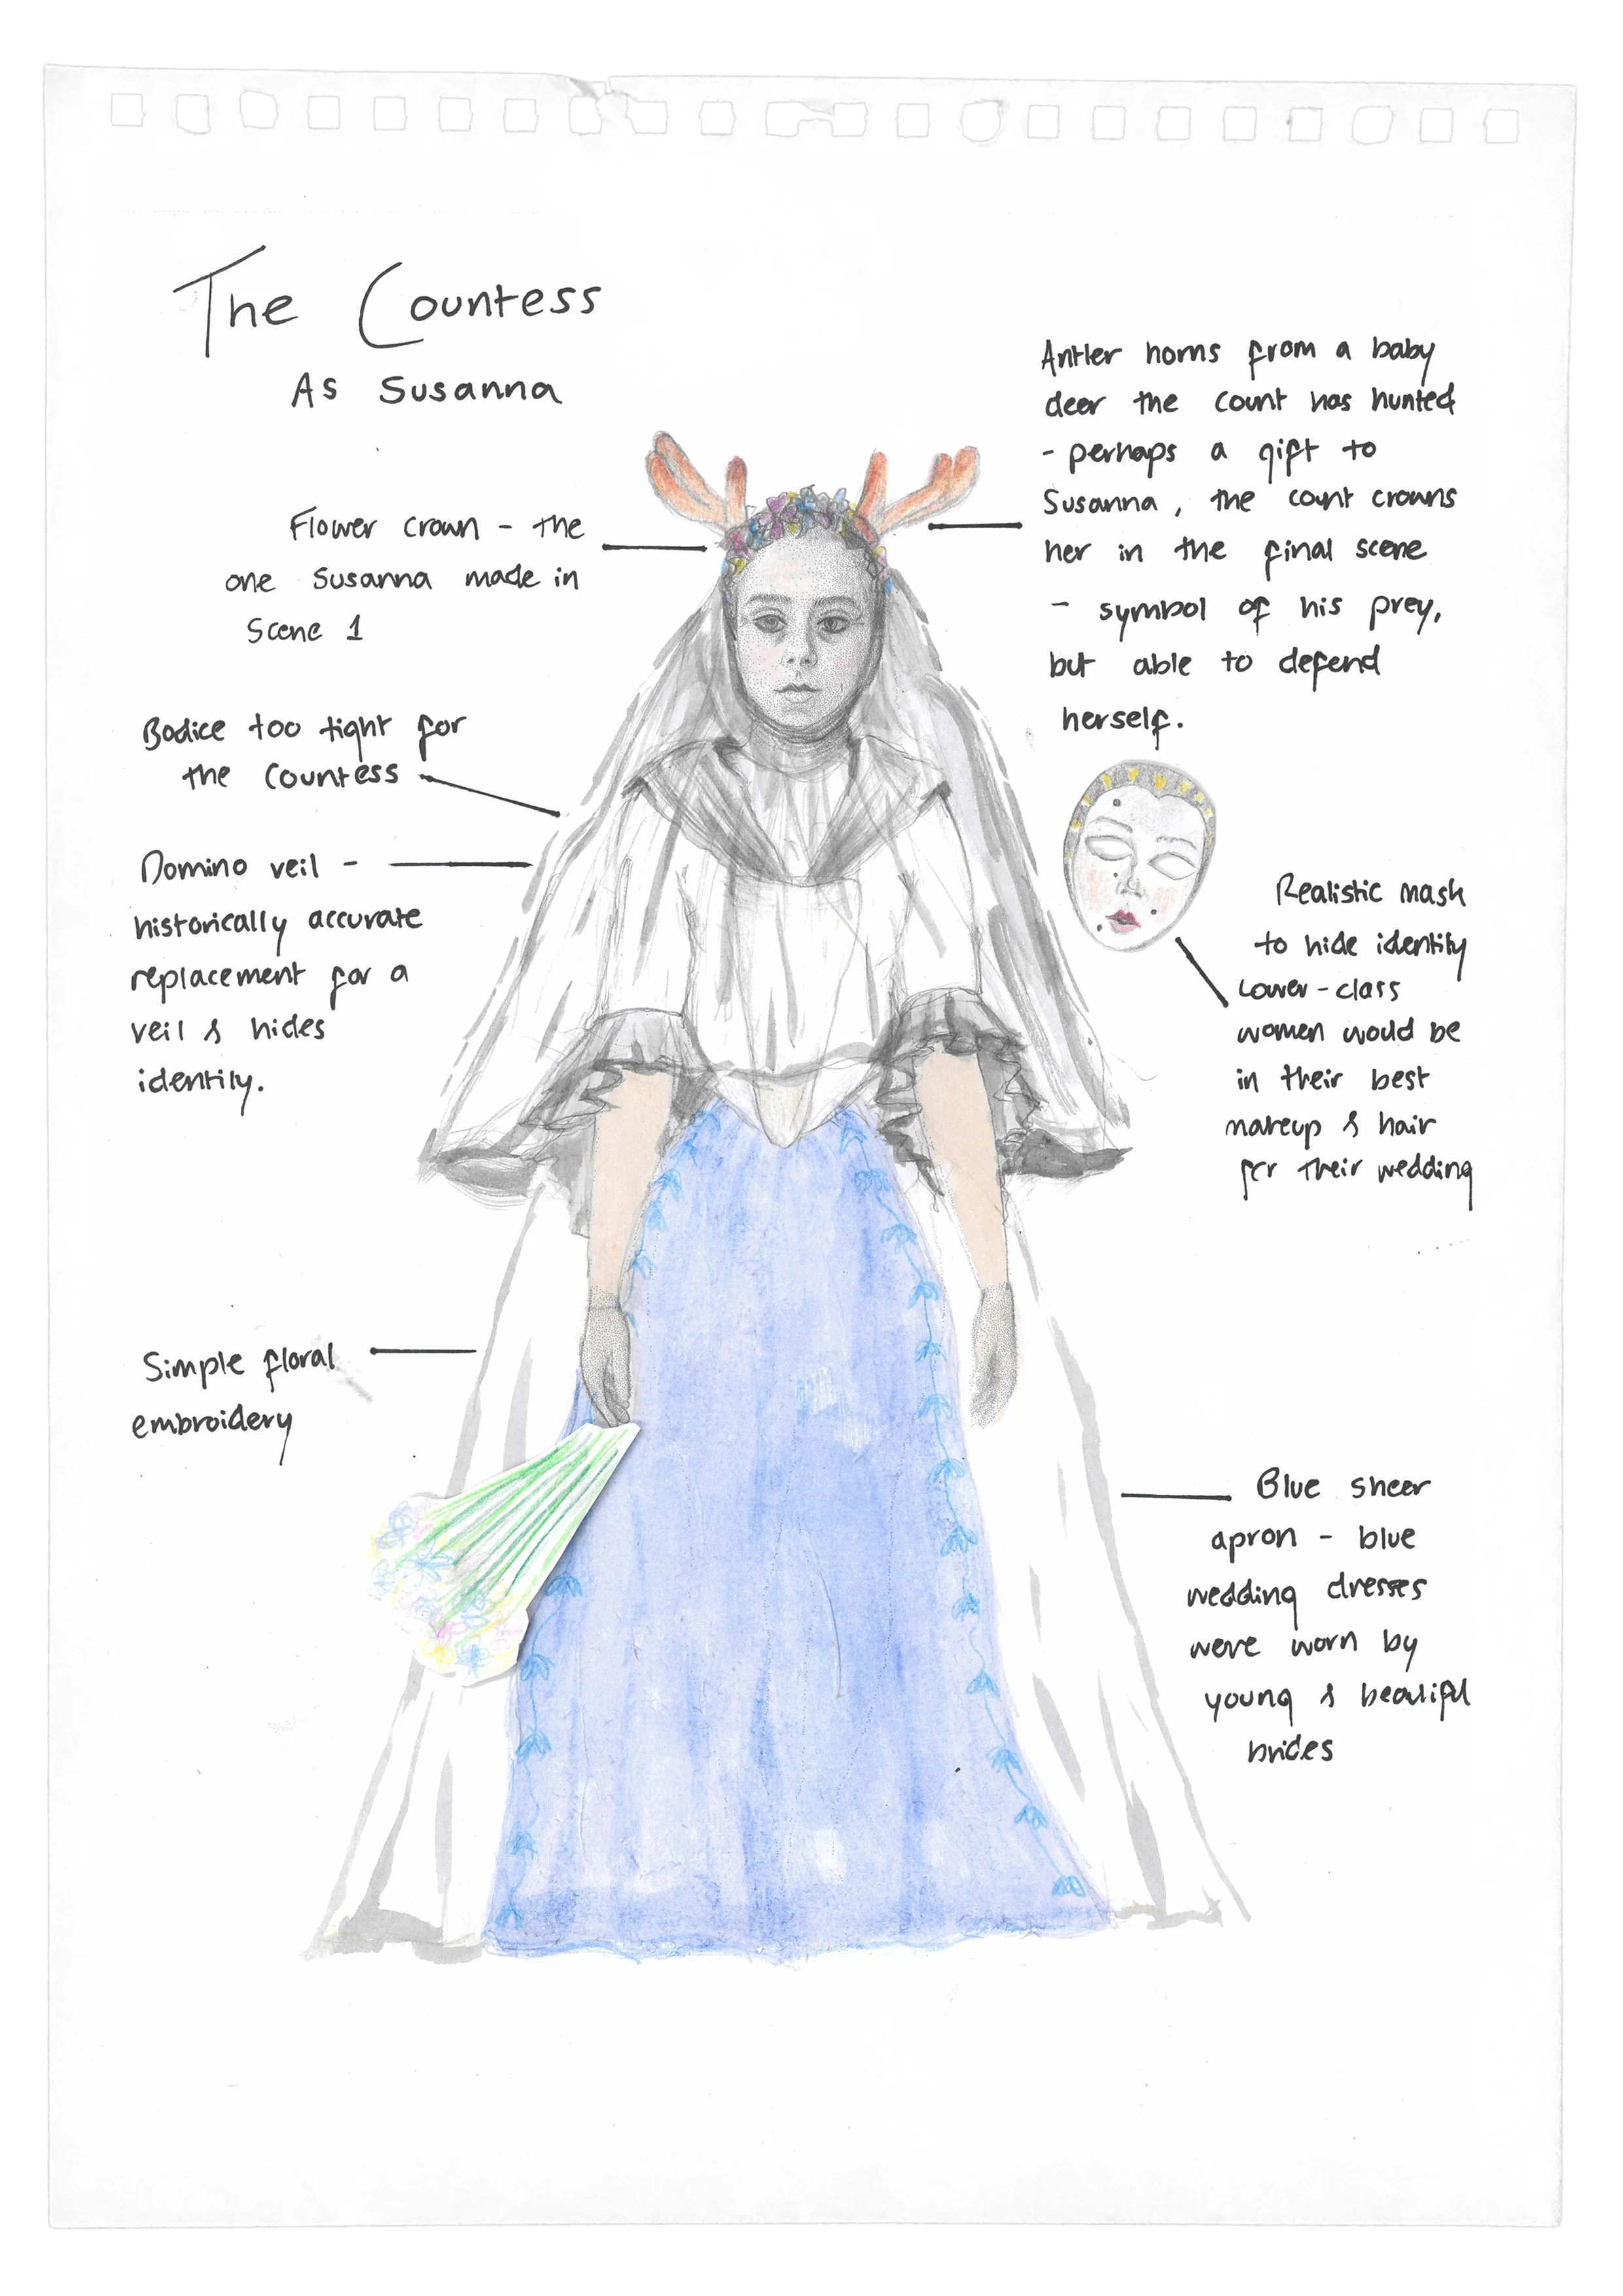 The Countess
As Susanna
Flower crown - the
one Susanna made in
Scene 1
Bodice too tight for
the Countess
Domino veil -
historically accurate
replacement for a
veil & hides
identity.
Simple floral
embroidery
Antler horns from a baby
deer the count has hunted
- perhaps a gift to
Susanna, the count crowns
her in the final scene
- symbol of his prey,
but able to defend
herself.
Realistic mask
to hide identity
Lower-class
women would be
in their best
makeup & hair
for their wedding
Blue sheer
apron - blue
wedding dresses
were worn by
young & beautiful
brides